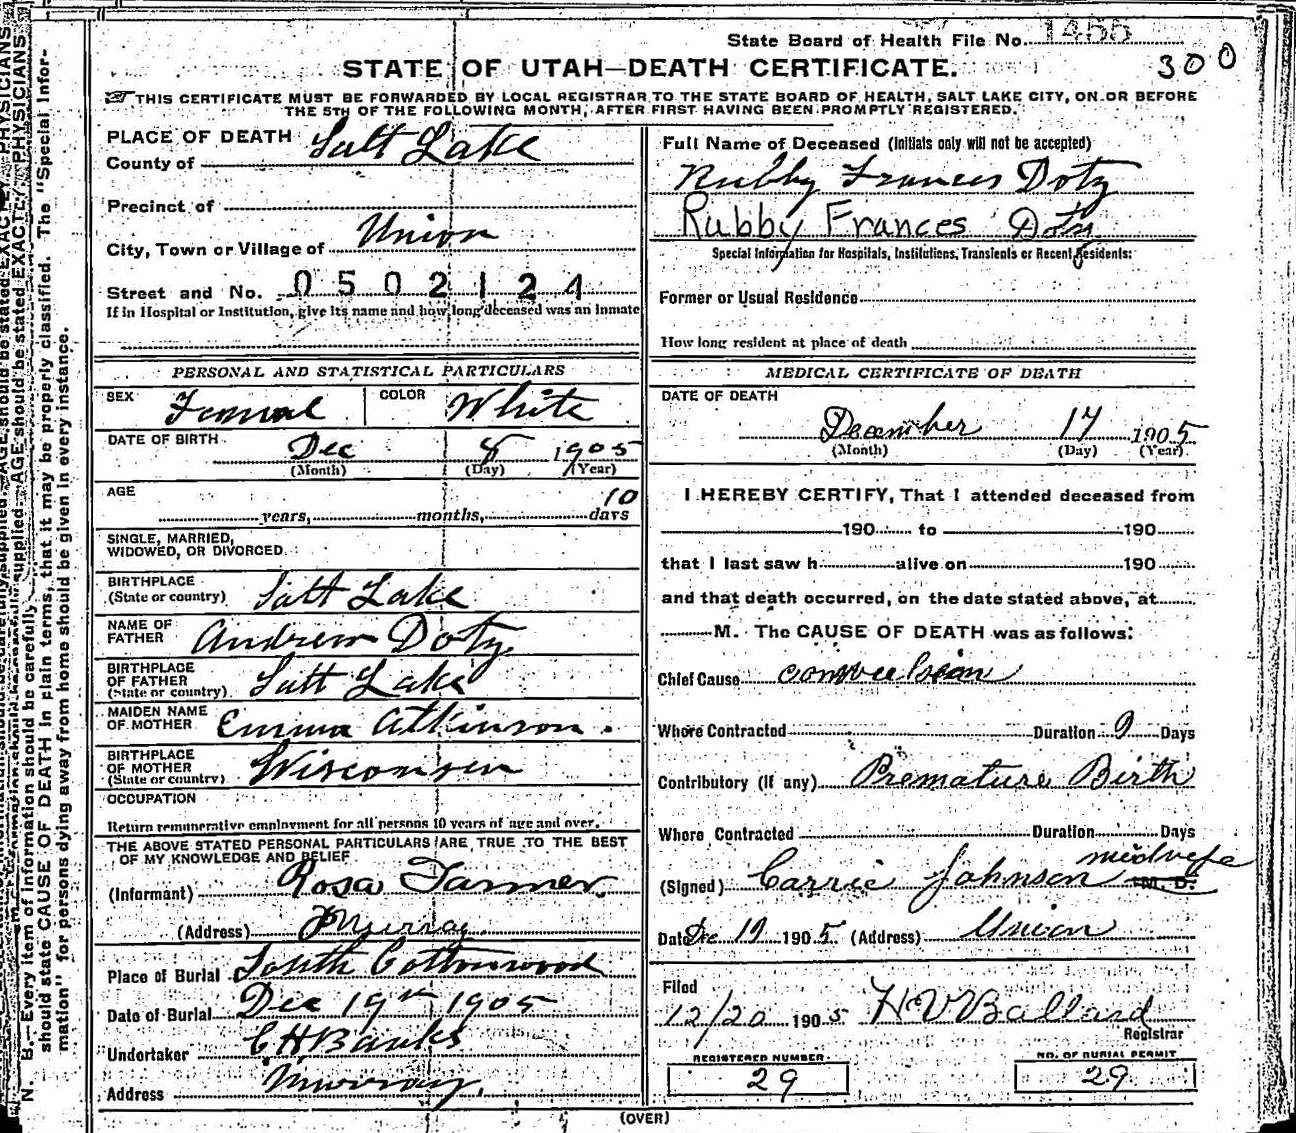 State Board of Health File No. 1455
300
STATE OF UTAH—DEATH CERTIFICATE.
THIS CERTIFICATE MUST BE FORWARDED BY LOCAL REGISTRAR TO THE STATE BOARD OF HEALTH, SALT LAKE CITY, ON OR BEFORE
THE 5TH OF THE FOLLOWING MONTH, AFTER FIRST HAVING BEEN PROMPTLY REGISTERED.
PLACE OF DEATH
County of Salt Lake
Precinct of
City, Town or Village of Union
Street and No. 0502124
If in Hospital or Institution, give its name and how long deceased was an inmate
Full Name of Deceased (Initials only will not be accepted)
Rubby Frances Doty
Rubby Frances Doty
Special Information for Hospitals, Institutions, Transients or Recent Residents:
Former or Usual Residence
How long resident at place of death
PERSONAL AND STATISTICAL PARTICULARS
SEX Femal
COLOR White
DATE OF BIRTH Dec 8 1905
(Month) (Day) (Year)
AGE
years, months, 10 days
SINGLE, MARRIED,
WIDOWED, OR DIVORCED
BIRTHPLACE
(State or country) Salt Lake
NAME OF
FATHER Andrew Doty
BIRTHPLACE
OF FATHER
(State or country) Salt Lake
MAIDEN NAME
OF MOTHER Emma Atkinson.
BIRTHPLACE
OF MOTHER
(State or country) Wisconsen
OCCUPATION
Return remunerative employment for all persons 10 years of age and over.
THE ABOVE STATED PERSONAL PARTICULARS ARE TRUE TO THE BEST
OF MY KNOWLEDGE AND BELIEF
(Informant) Rosa Farmer
(Address) Murray.
Place of Burial South Cottonwood
Date of Burial Dec 19th 1905
Undertaker C H Banks
Address Murray.
MEDICAL CERTIFICATE OF DEATH
DATE OF DEATH
December 17 1905
(Month) (Day) (Year)
I HEREBY CERTIFY, That I attended deceased from
190 to 190
that I last saw h alive on 190
and that death occurred, on the date stated above, at
M. The CAUSE OF DEATH was as follows:
Chief Cause
Where Contracted Duration 9 Days
Contributory (if any) Premature Birth
Where Contracted Duration Days
midwife
(Signed) Carrie Johnson M. D.
Date Dec 19 1905 (Address) Union
Filed
12/20 1905 H V Ballard
Registrar
REGISTERED NUMBER
29
NO. OF BURIAL PERMIT
29
(OVER)
N. B.—Every item of information should be carefully supplied. AGE should be stated EXACTLY. PHYSICIANS
should state CAUSE OF DEATH in plain terms, that it may be properly classified. The "Special Infor-
mation" for persons dying away from home should be given in every instance.